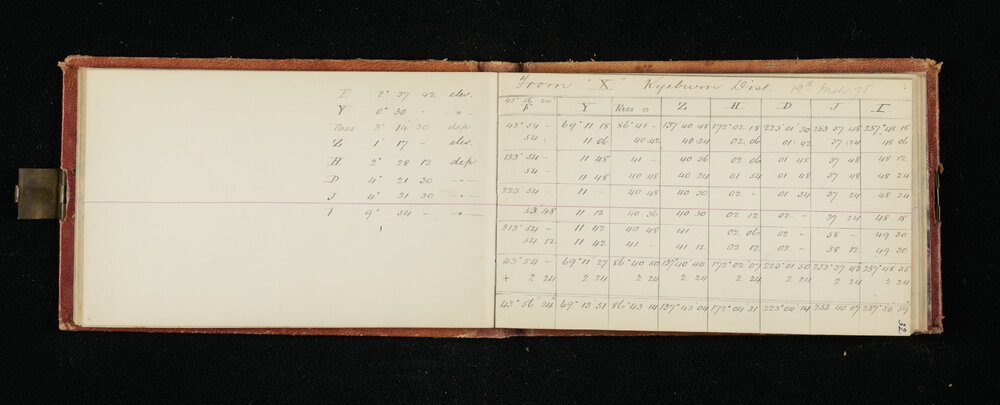 F 2° 37 42 elev.
Y 0° 30 - -"-
Pass 3° 14 30 dep
Z 1° 17 - elev.
H 2° 28 12 dep
D 4° 21 30 -"-
J 4° 21 30 -"-
I 9° 54 - -"-
From "X" Kyeburn Dist. 19th Mch 78
43° 56 24"
F Y Pass ⊙ Z H D J I
43° 54 - 69° 11 18 86° 41 - 137° 40 48 172° 02 18 223° 01 30 253 37 48 257° 48 18
54 - 11 06 40 42 40 24 02 06 01 42 37 24 48 06
133° 54 - 11 48 41 - 40 36 02 06 01 48 37 48 48 12
54 - 11 48 40 48 40 24 01 54 01 48 37 48 48 24
223 54 - 11 - 40 48 40 30 02 - 01 54 37 24 48 24
53 48 11 12 40 36 40 30 02 12 02 - 37 24 48 18
313° 54 - 11 42 40 48 41 - 02 06 02 - 38 - 49 30
54 12 11 42 41 - 41 12 02 12 02 - 38 12 49 30
43° 54 - 69° 11 27 86° 40 50 137° 40 40 172° 02 07 223° 01 50 253° 37 43 257° 48 35
+ 2 24 2 24 2 24 2 24 2 24 2 24 2 24 2 24
43° 56 24 69° 13 51 86° 43 14 137° 43 04 172° 04 31 223° 04 14 253 40 07 257° 50 59
32